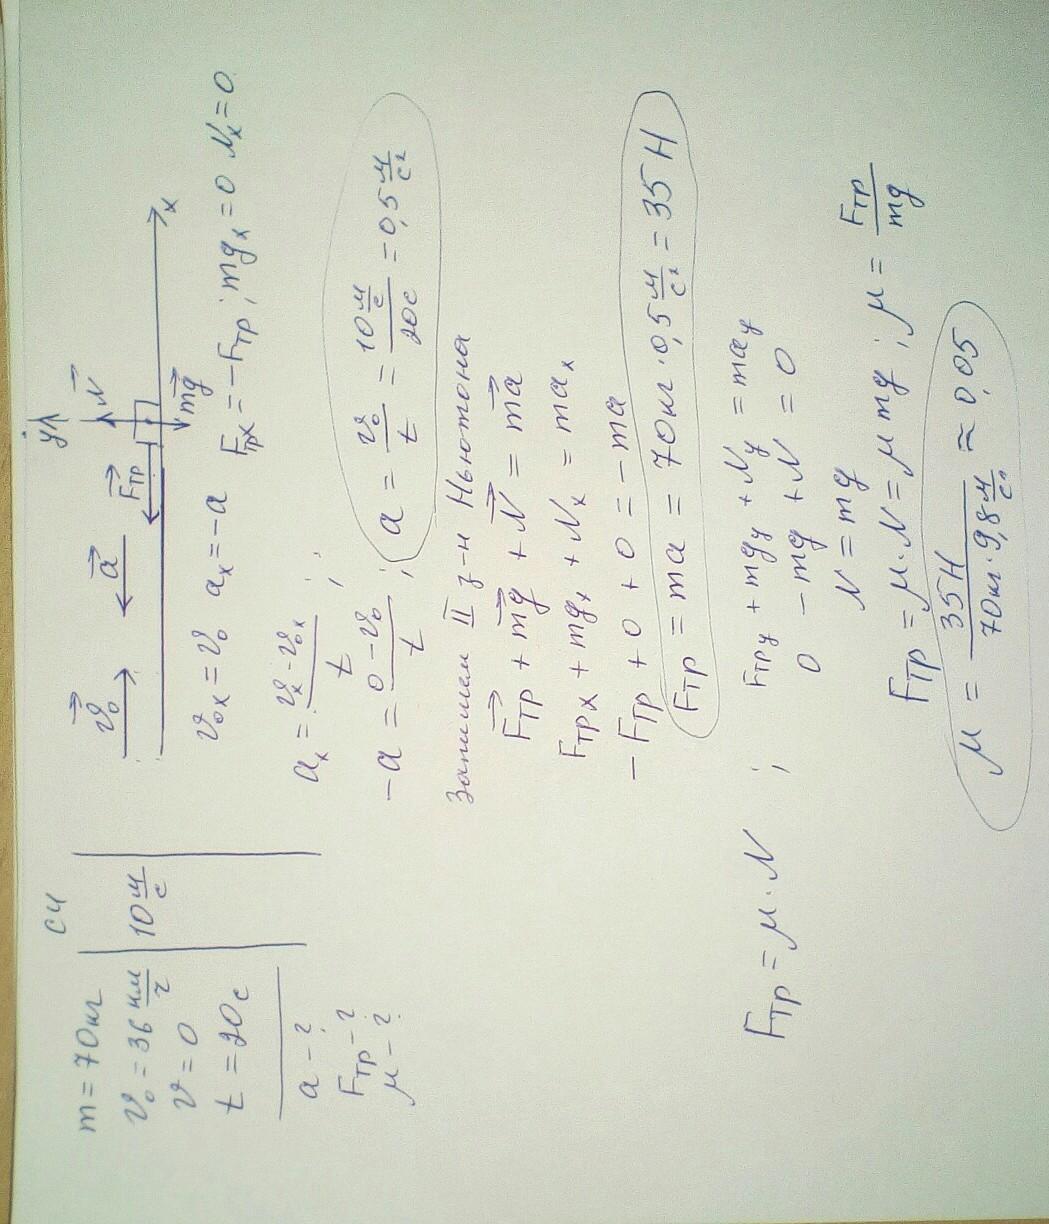 m = 70 кг
СИ
v₀ = 36 км/ч
10 м/с
v = 0
t = 20 с
a - ?
Fтр - ?
μ - ?
y
N⃗
v⃗₀
a⃗
F⃗тр
mg⃗
x
v₀ₓ = v₀ aₓ = -a Fтрₓ = -Fтр ; mgₓ = 0 Nₓ = 0
aₓ = (vₓ - v₀ₓ)/t ;
-a = (0 - v₀)/t ; a = v₀/t = (10 м/с)/(20 с) = 0,5 м/с²
Запишем II з-н Ньютона
F⃗тр + mg⃗ + N⃗ = ma⃗
Fтрₓ + mgₓ + Nₓ = maₓ
-Fтр + 0 + 0 = -ma
Fтр = ma = 70 кг · 0,5 м/с² = 35 Н
Fтр = μ · N ; Fтрy + mgy + Ny = may
0 - mg + N = 0
N = mg
Fтр = μ · N = μ mg ; μ = Fтр/mg
μ = 35 Н/(70 кг · 9,8 м/с²) ≈ 0,05